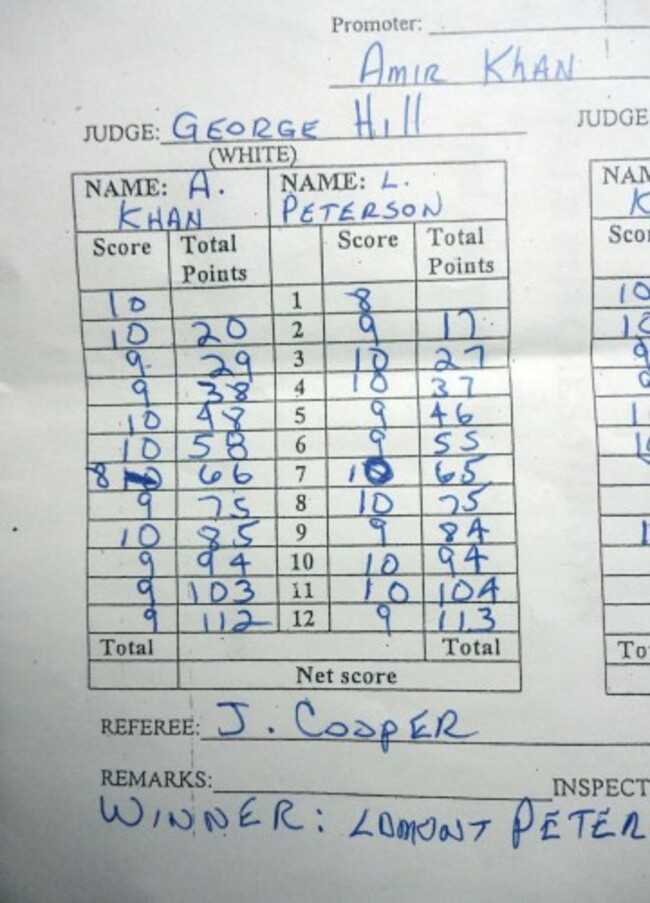 Promoter:
AMIR KHAN
JUDGE: GEORGE Hill
JUDGE
(WHITE)
NAME: A. KHAN NAME: L. PETERSON
Score Total Points Score Total Points
10 1 8
10 20 2 9 17
9 29 3 10 27
9 38 4 10 37
10 48 5 9 46
10 58 6 9 55
8 66 7 10 65
9 75 8 10 75
10 85 9 9 84
9 94 10 10 94
9 103 11 10 104
9 112 12 9 113
Total Total
Net score
REFEREE: J. COOPER
REMARKS: INSPECT
WINNER: LAMONT PETER